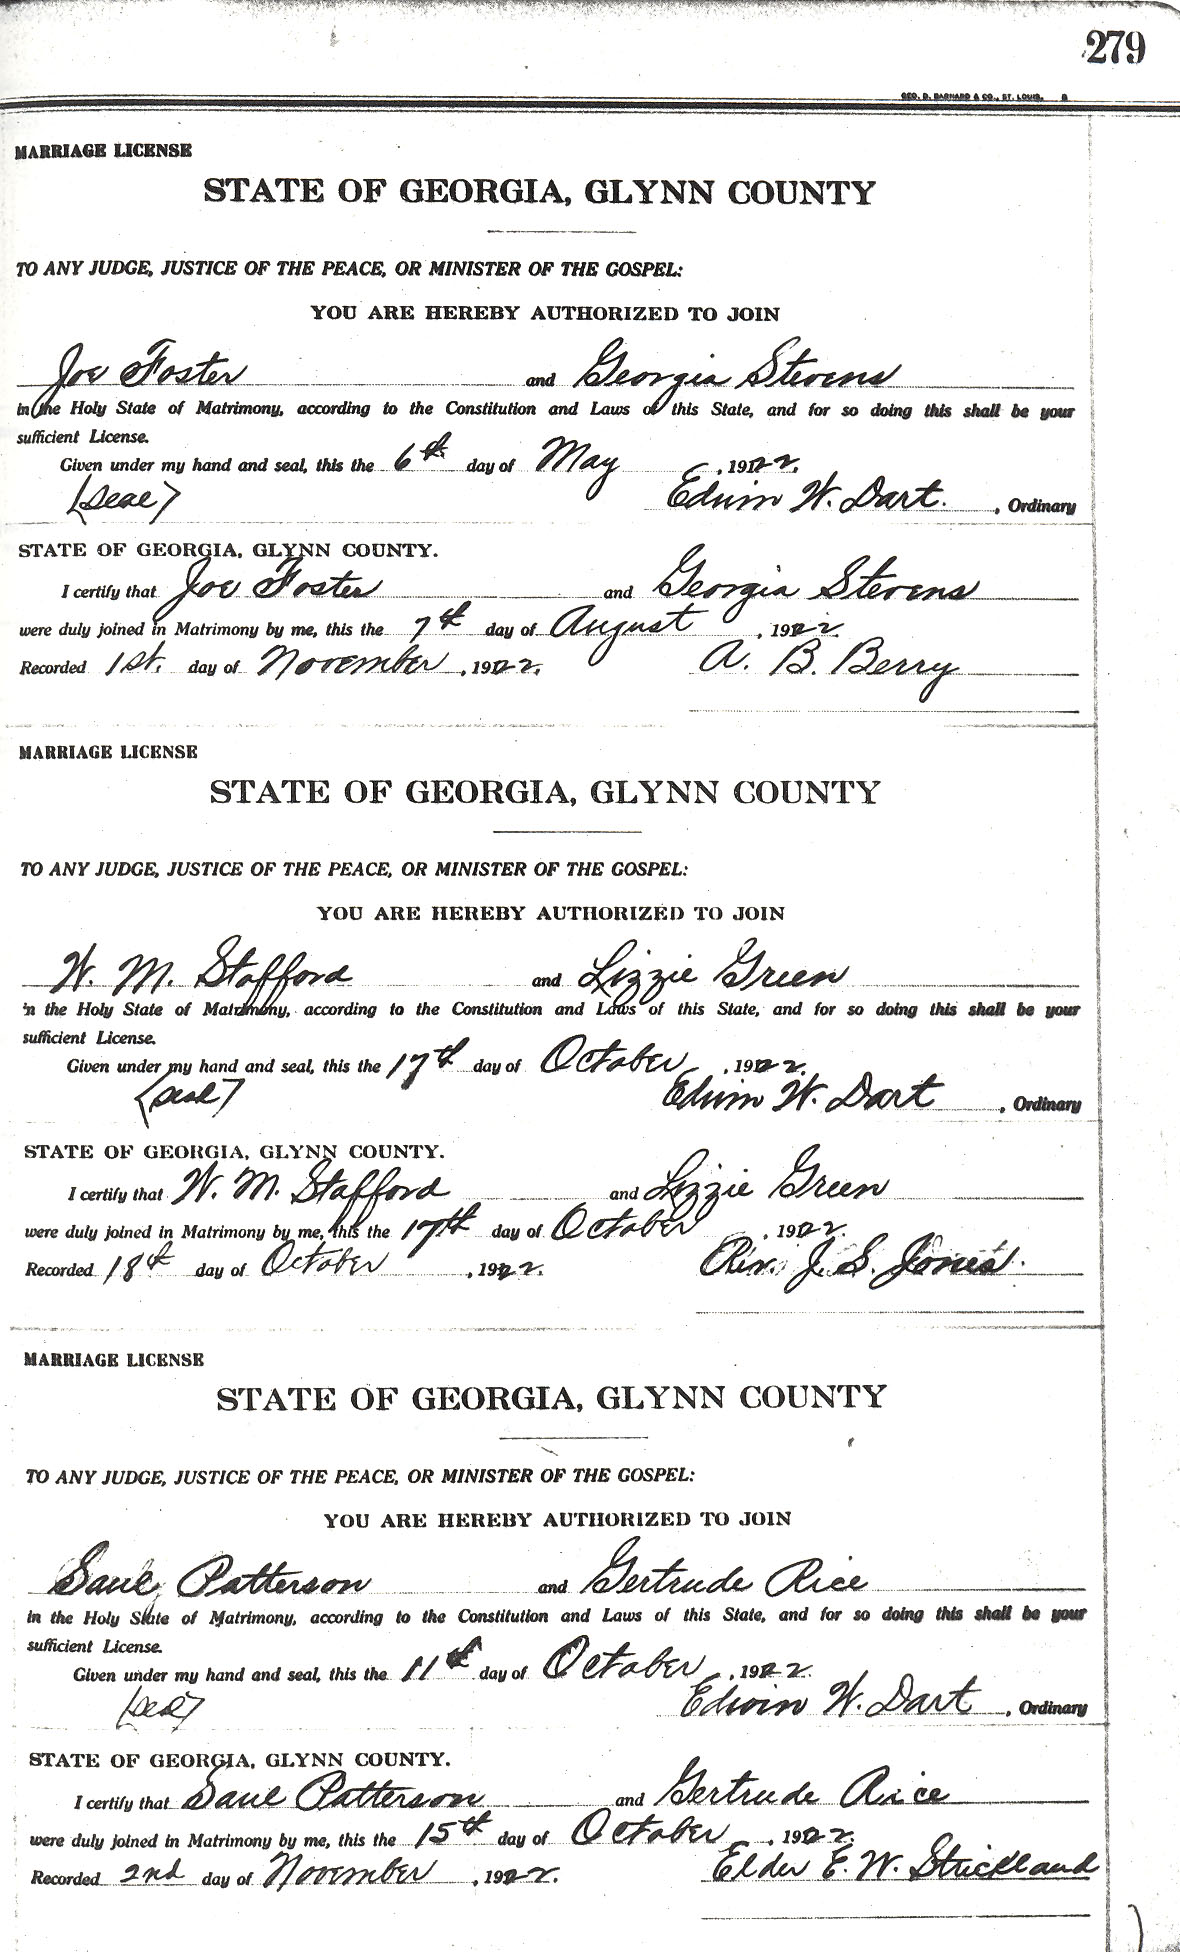 279
GEO. D. BARNARD & CO., ST. LOUIS. B
MARRIAGE LICENSE
STATE OF GEORGIA, GLYNN COUNTY
TO ANY JUDGE, JUSTICE OF THE PEACE, OR MINISTER OF THE GOSPEL:
YOU ARE HEREBY AUTHORIZED TO JOIN
Joe Foster and Georgia Stevens
in the Holy State of Matrimony, according to the Constitution and Laws of this State, and for so doing this shall be your
sufficient License.
Given under my hand and seal, this the 6th day of May, 1922.
(Seal) Edwin W. Dart., Ordinary
STATE OF GEORGIA, GLYNN COUNTY.
I certify that Joe Foster and Georgia Stevens
were duly joined in Matrimony by me, this the 7th day of August, 1922.
Recorded 1st. day of November, 1922. A. B. Berry
MARRIAGE LICENSE
STATE OF GEORGIA, GLYNN COUNTY
TO ANY JUDGE, JUSTICE OF THE PEACE, OR MINISTER OF THE GOSPEL:
YOU ARE HEREBY AUTHORIZED TO JOIN
W. M. Stafford and Lizzie Green
in the Holy State of Matrimony, according to the Constitution and Laws of this State, and for so doing this shall be your
sufficient License.
Given under my hand and seal, this the 17th day of October, 1922.
(seal) Edwin W. Dart, Ordinary
STATE OF GEORGIA, GLYNN COUNTY.
I certify that W. M. Stafford and Lizzie Green
were duly joined in Matrimony by me, this the 17th day of October, 1922.
Recorded 18th day of October, 1922. Rev. J. S. Jones.
MARRIAGE LICENSE
STATE OF GEORGIA, GLYNN COUNTY
TO ANY JUDGE, JUSTICE OF THE PEACE, OR MINISTER OF THE GOSPEL:
YOU ARE HEREBY AUTHORIZED TO JOIN
Saul Patterson and Gertrude Rice
in the Holy State of Matrimony, according to the Constitution and Laws of this State, and for so doing this shall be your
sufficient License.
Given under my hand and seal, this the 11th day of October, 1922.
(seal) Edwin W. Dart, Ordinary
STATE OF GEORGIA, GLYNN COUNTY.
I certify that Saul Patterson and Gertrude Rice
were duly joined in Matrimony by me, this the 15th day of October, 1922.
Recorded 2nd day of November, 1922. Elder E. W. Strickland